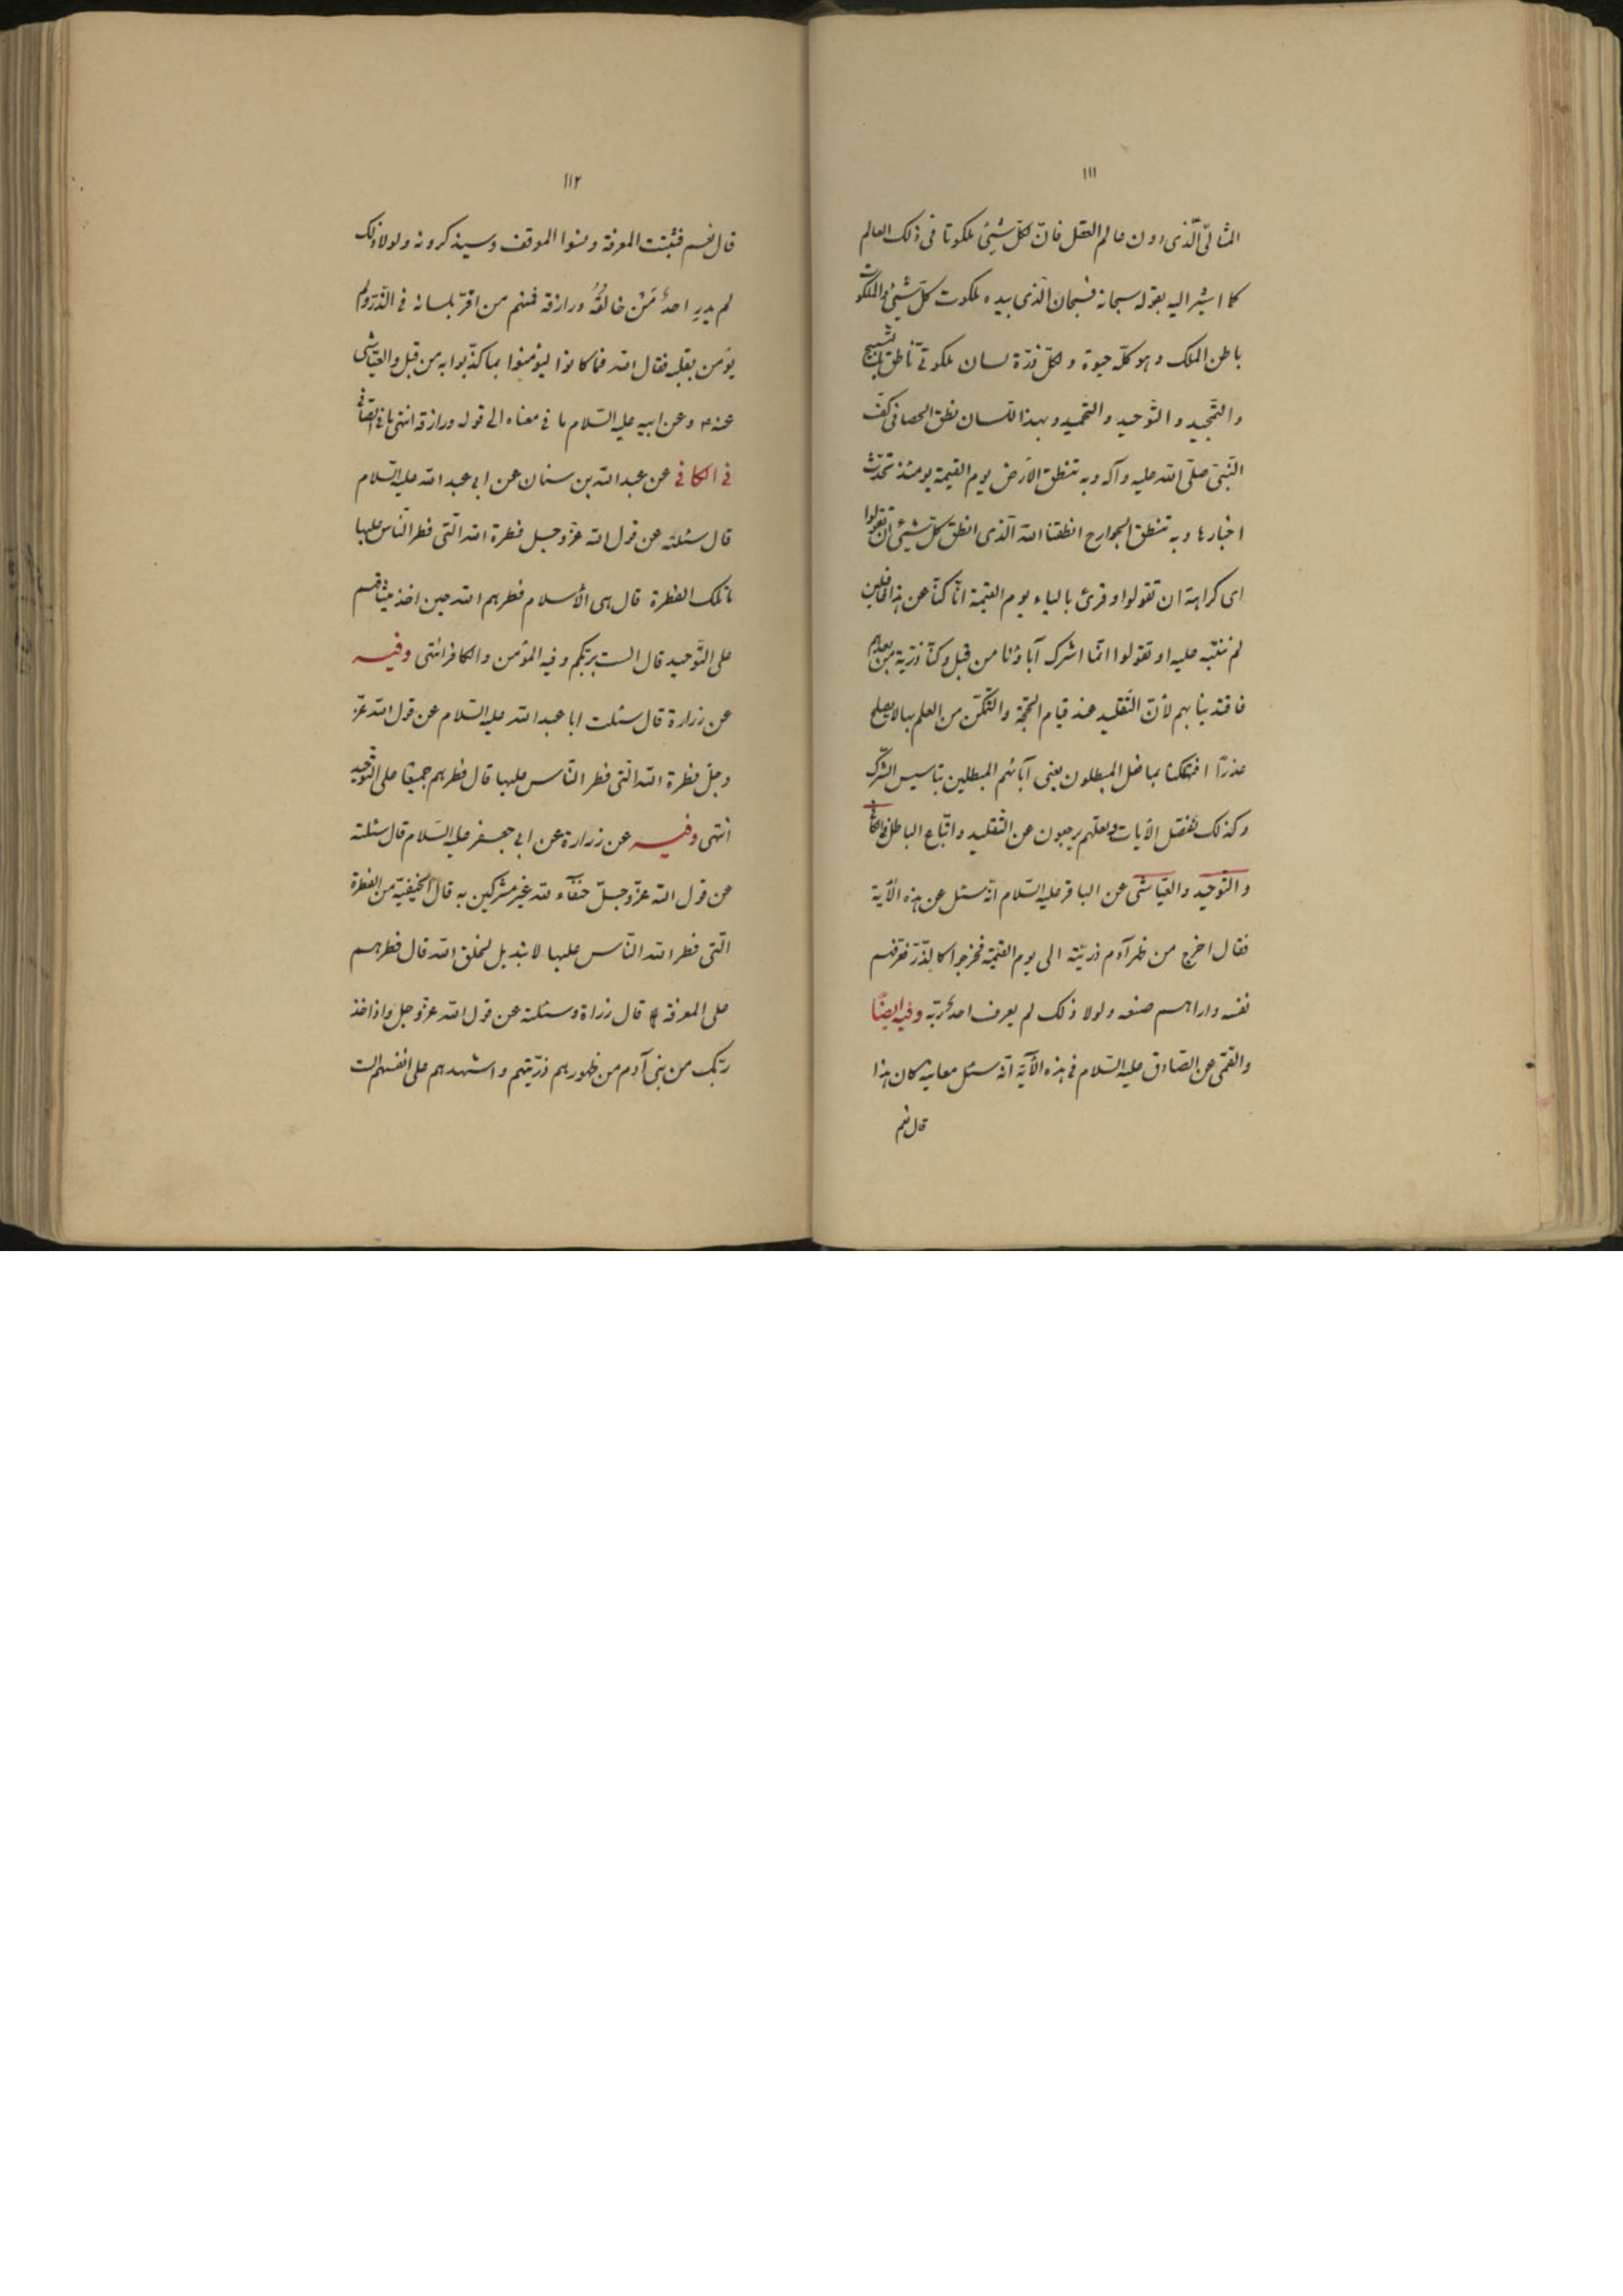 ١١١
المثالىّ الّذى دون عالم العقل فانّ لكلّ شيئ ملكوتا فى ذلك العالم
كما اشير اليه بقوله سبحانه فسبحان الّذى بيده ملكوت كلّ شيئ والملكوت
باطن الملك وهو كلّه حيوة ولكلّ ذرّة لسان ملكوتىّ ناطق بالتسبيح
والتّمجيد والتّوحيد والتّحميد وبهذا اللّسان نطق الحصا فى كفّ
النّبىّ صلّى الله عليه وآله وبه تنطق الارض يوم القيمة يومئذ تحدّث
اخبارها وبه تنطق الجوارح انطقنا الله الّذى انطق كلّ شيئ ان تقولوا
اى كراهة ان تقولوا وقرئ بالياء يوم القيمة انّا كنّا عن هذا غافلين
لم ننبّه عليه او تقولوا انّما اشرك آباؤنا من قبل وكنّا ذرّية من بعدهم
فاقتدينا بهم لانّ التّقليد عند قيام الحجّة والتّمكّن من العلم بها لا يصلح
عذرًا افتهلكنا بما فعل المبطلون يعنى آبائهم المبطلين بتأسيس الشّرك
وكذلك نفصّل الآيات ولعلّهم يرجعون عن التّقليد واتّباع الباطل فى الكافى
والتّوحيد والعيّاشى عن الباقر عليه السّلام انّه سئل عن هذه الآية
فقال اخرج من ظهر آدم ذرّيّته الى يوم القيمة فخرجوا كالذّرّ فعرّفهم
نفسه واراهم صنعه ولولا ذلك لم يعرف احد ربّه وفيه ايضًا
والقمّى عن الصّادق عليه السّلام فى هذه الآية انّه سئل معاينة كان هذا
قال نعم
١١٢
قال نعم فثبتت المعرفة ونسوا الموقف وسيذكرونه ولولا ذلك
لم يدر احدٌ مَنْ خالقُهُ ورازقه فمنهم من اقرّ بلسانه فى الذّرّ ولم
يؤمن بقلبه فقال الله فما كانوا ليؤمنوا بما كذّبوا به من قبل والعيّاشى
عنه وعن ابيه عليه السّلام ما فى معناه الى قوله ورازقه انتهى ما فى الصّافى
فى الكافى عن عبد الله بن سنان عن ابى عبد الله عليه السّلام
قال سئلته عن قول الله عزّ وجل فطرة الله الّتى فطر النّاس عليها
ما تلك الفطرة قال هى الأسلام فطرهم الله حين اخذ ميثاقهم
على التّوحيد قال الست بربّكم وفيه المؤمن والكافر انتهى وفيه
عن زرارة قال سئلت ابا عبد الله عليه السّلام عن قول الله عزّ
وجلّ فطرة الله الّتى فطر النّاس عليها قال فطرهم جميعًا على التّوحيد
انتهى وفيه عن زرارة عن ابى جعفر عليه السّلام قال سئلته
عن قول الله عزّ وجلّ حنفاء لله غير مشركين به قال الحنيفيّة من الفطرة
الّتى فطر الله النّاس عليها لا تبديل لخلق الله قال فطرهم
على المعرفة به قال زراة وسئلته عن قول الله عزّ وجل واذ اخذ
ربّك من بنى آدم من ظهورهم ذرّيّتهم واشهدهم على انفسهم الست